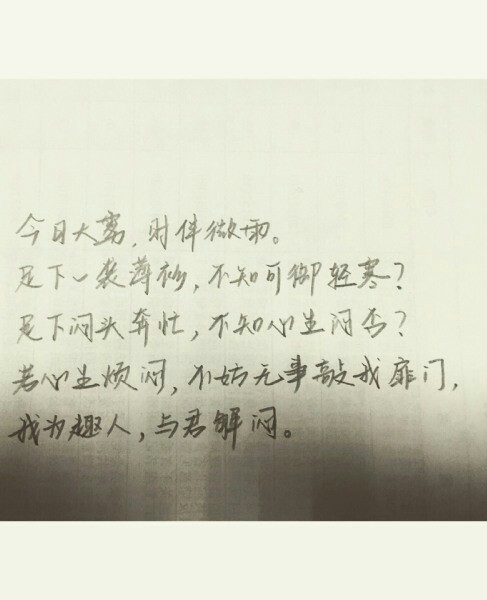 今日大雾,时伴微雨。
足下一袭薄衫,不知可御轻寒?
足下闷头奔忙,不知心生闷否?
若心生烦闷,不妨无事敲我扉门,
我为趣人,与君解闷。